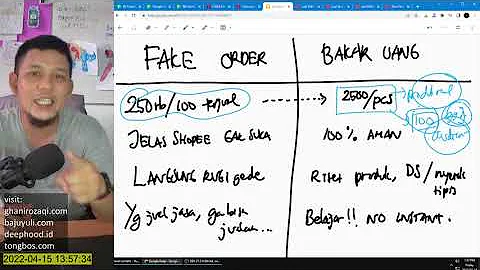 FAKE ORDER
BAKAR UANG
250rb/100
2500/pcs
100
JELAS SHOPEE GAK SUKA
100% AMAN
LANGSUNG RUGI gede
Riset produk, DS/nyetok
tipis
Yg jual jasa, ga bisa
jualan...
Belajar!! NO INSTANT.
visit:
ghanirozaqi.com
bajuyuli.com
deephood.id
tongbos.com
2022-04-15 13:57:34